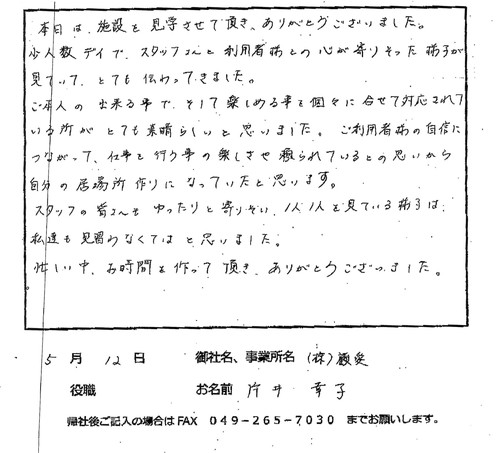 本日は、施設を見学させて頂き、ありがとうございました。
少人数デイで、スタッフさんと利用者様との心が寄りそった様子が
見ていて、とても伝わってきました。
ご本人の出来る事で、そして楽しめる事を個々に合せて対応されて
いる所がとても素晴らしいと思いました。ご利用者様の自信に
つながって、仕事を行う事の楽しさや頼られているとの思いから
自分の居場所作りになっていたと思います。
スタッフの皆さんもゆったりと寄りそい、1人1人を見ている様子は、
私達も見習わなくてはと思いました。
忙しい中、お時間を作って頂き、ありがとうございました。
5 月 12 日 御社名、事業所名 (株)
役職 お名前 片井 幸子
帰社後ご記入の場合は FAX 049-265-7030 までお願いします。